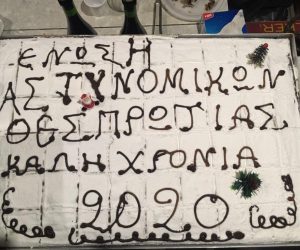 ΕΝΩΣΗ
ΑΣΤΥΝΟΜΙΚΩΝ
ΘΕΣΠΡΩΤΙΑΣ
ΚΑΛΗ ΧΡΟΝΙΑ
2020